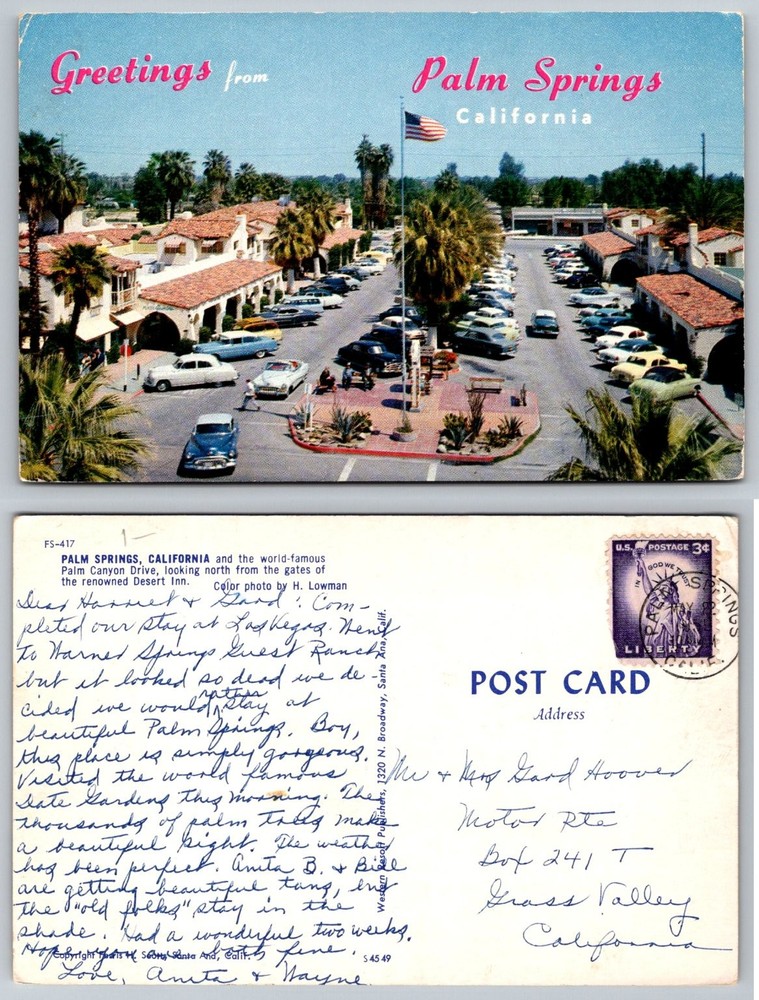 Greetings from Palm Springs
California
FS-417
PALM SPRINGS, CALIFORNIA and the world-famous
Palm Canyon Drive, looking north from the gates of
the renowned Desert Inn. Color photo by H. Lowman
Dear Harriet & Gard: Com-
pleted our stay at Las Vegas. Went
to Warner Springs Guest Ranch
but it looked so dead we de-
cided we would rather stay at
beautiful Palm Springs. Boy,
this place is simply gorgeous.
Visited the world famous
Date Gardens this morning. The
thousands of palm trees make
a beautiful sight. The weather
has been perfect. Anita B. & Bill
are getting beautiful tans, but
the "old folks" stay in the
shade. Had a wonderful two weeks.
Hope you are both fine.
Love, Anita & Wayne
Copyright Scott, Santa Ana, Calif.
S4549
Western Resort Publishers, 1320 N. Broadway, Santa Ana, Calif.
U.S. POSTAGE 3¢
IN GOD WE TRUST
LIBERTY
PALM SPRINGS
MAY
CALIF
POST CARD
Address
Mr & Mrs Gard Hoover
Motor Rte
Box 241 T
Grass Valley
California